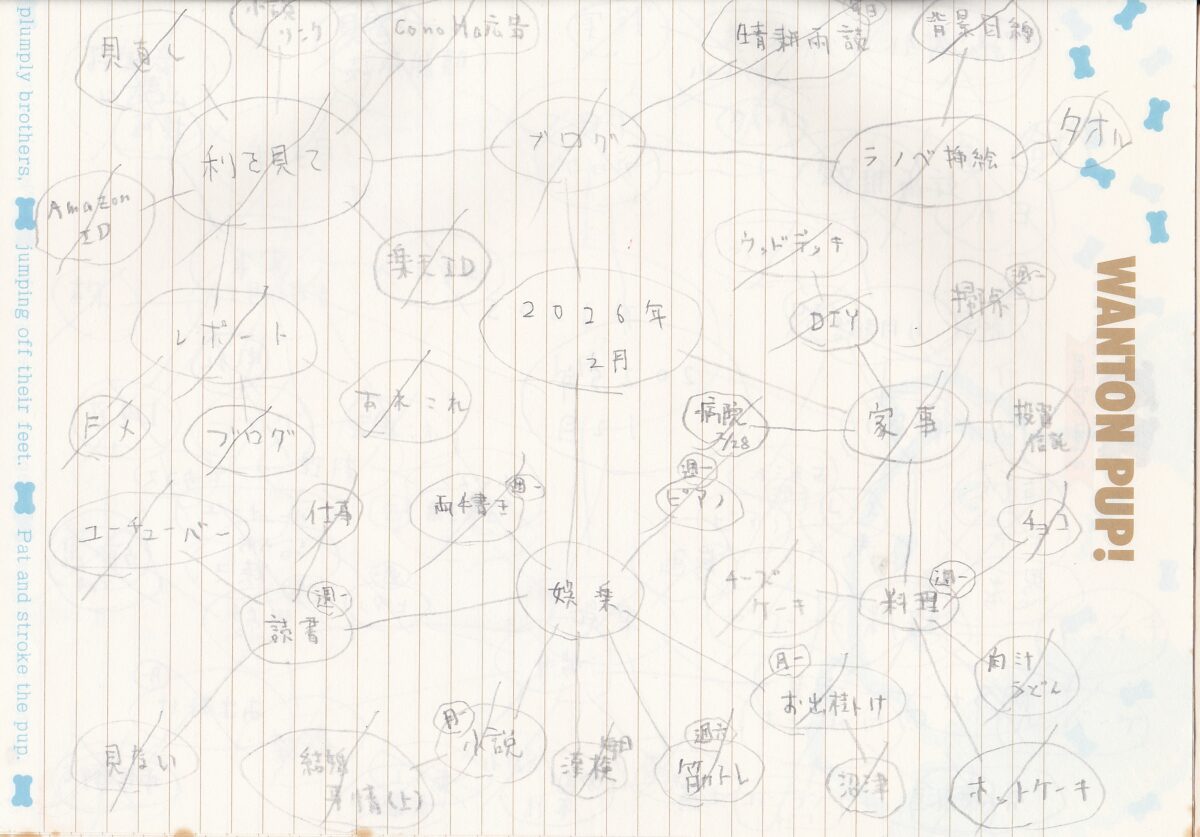 plumply brothers.
jumping off their feet.
Pat and stroke the pup.
見直し
リンク
ConoHa広告
晴耕雨読
毎日
背景目線
利を見て
ブログ
ラノベ挿絵
タオル
Amazon
ID
楽天ID
ウッドデッキ
レポート
2026年
2月
DIY
掃除
週一
ドメ
ブログ
あれこれ
病院
2/28
家事
投資
信託
ユーチューバー
仕事
両手書き
週一
週一
ピアノ
チョコ
読書
週一
娯楽
チーズ
ケーキ
料理
週一
肉汁
うどん
月一
お出掛け
見ない
結婚
事情(上)
月一
小説
漢検
毎日
週六
筋トレ
沼津
ホットケーキ
WANTON PUP!